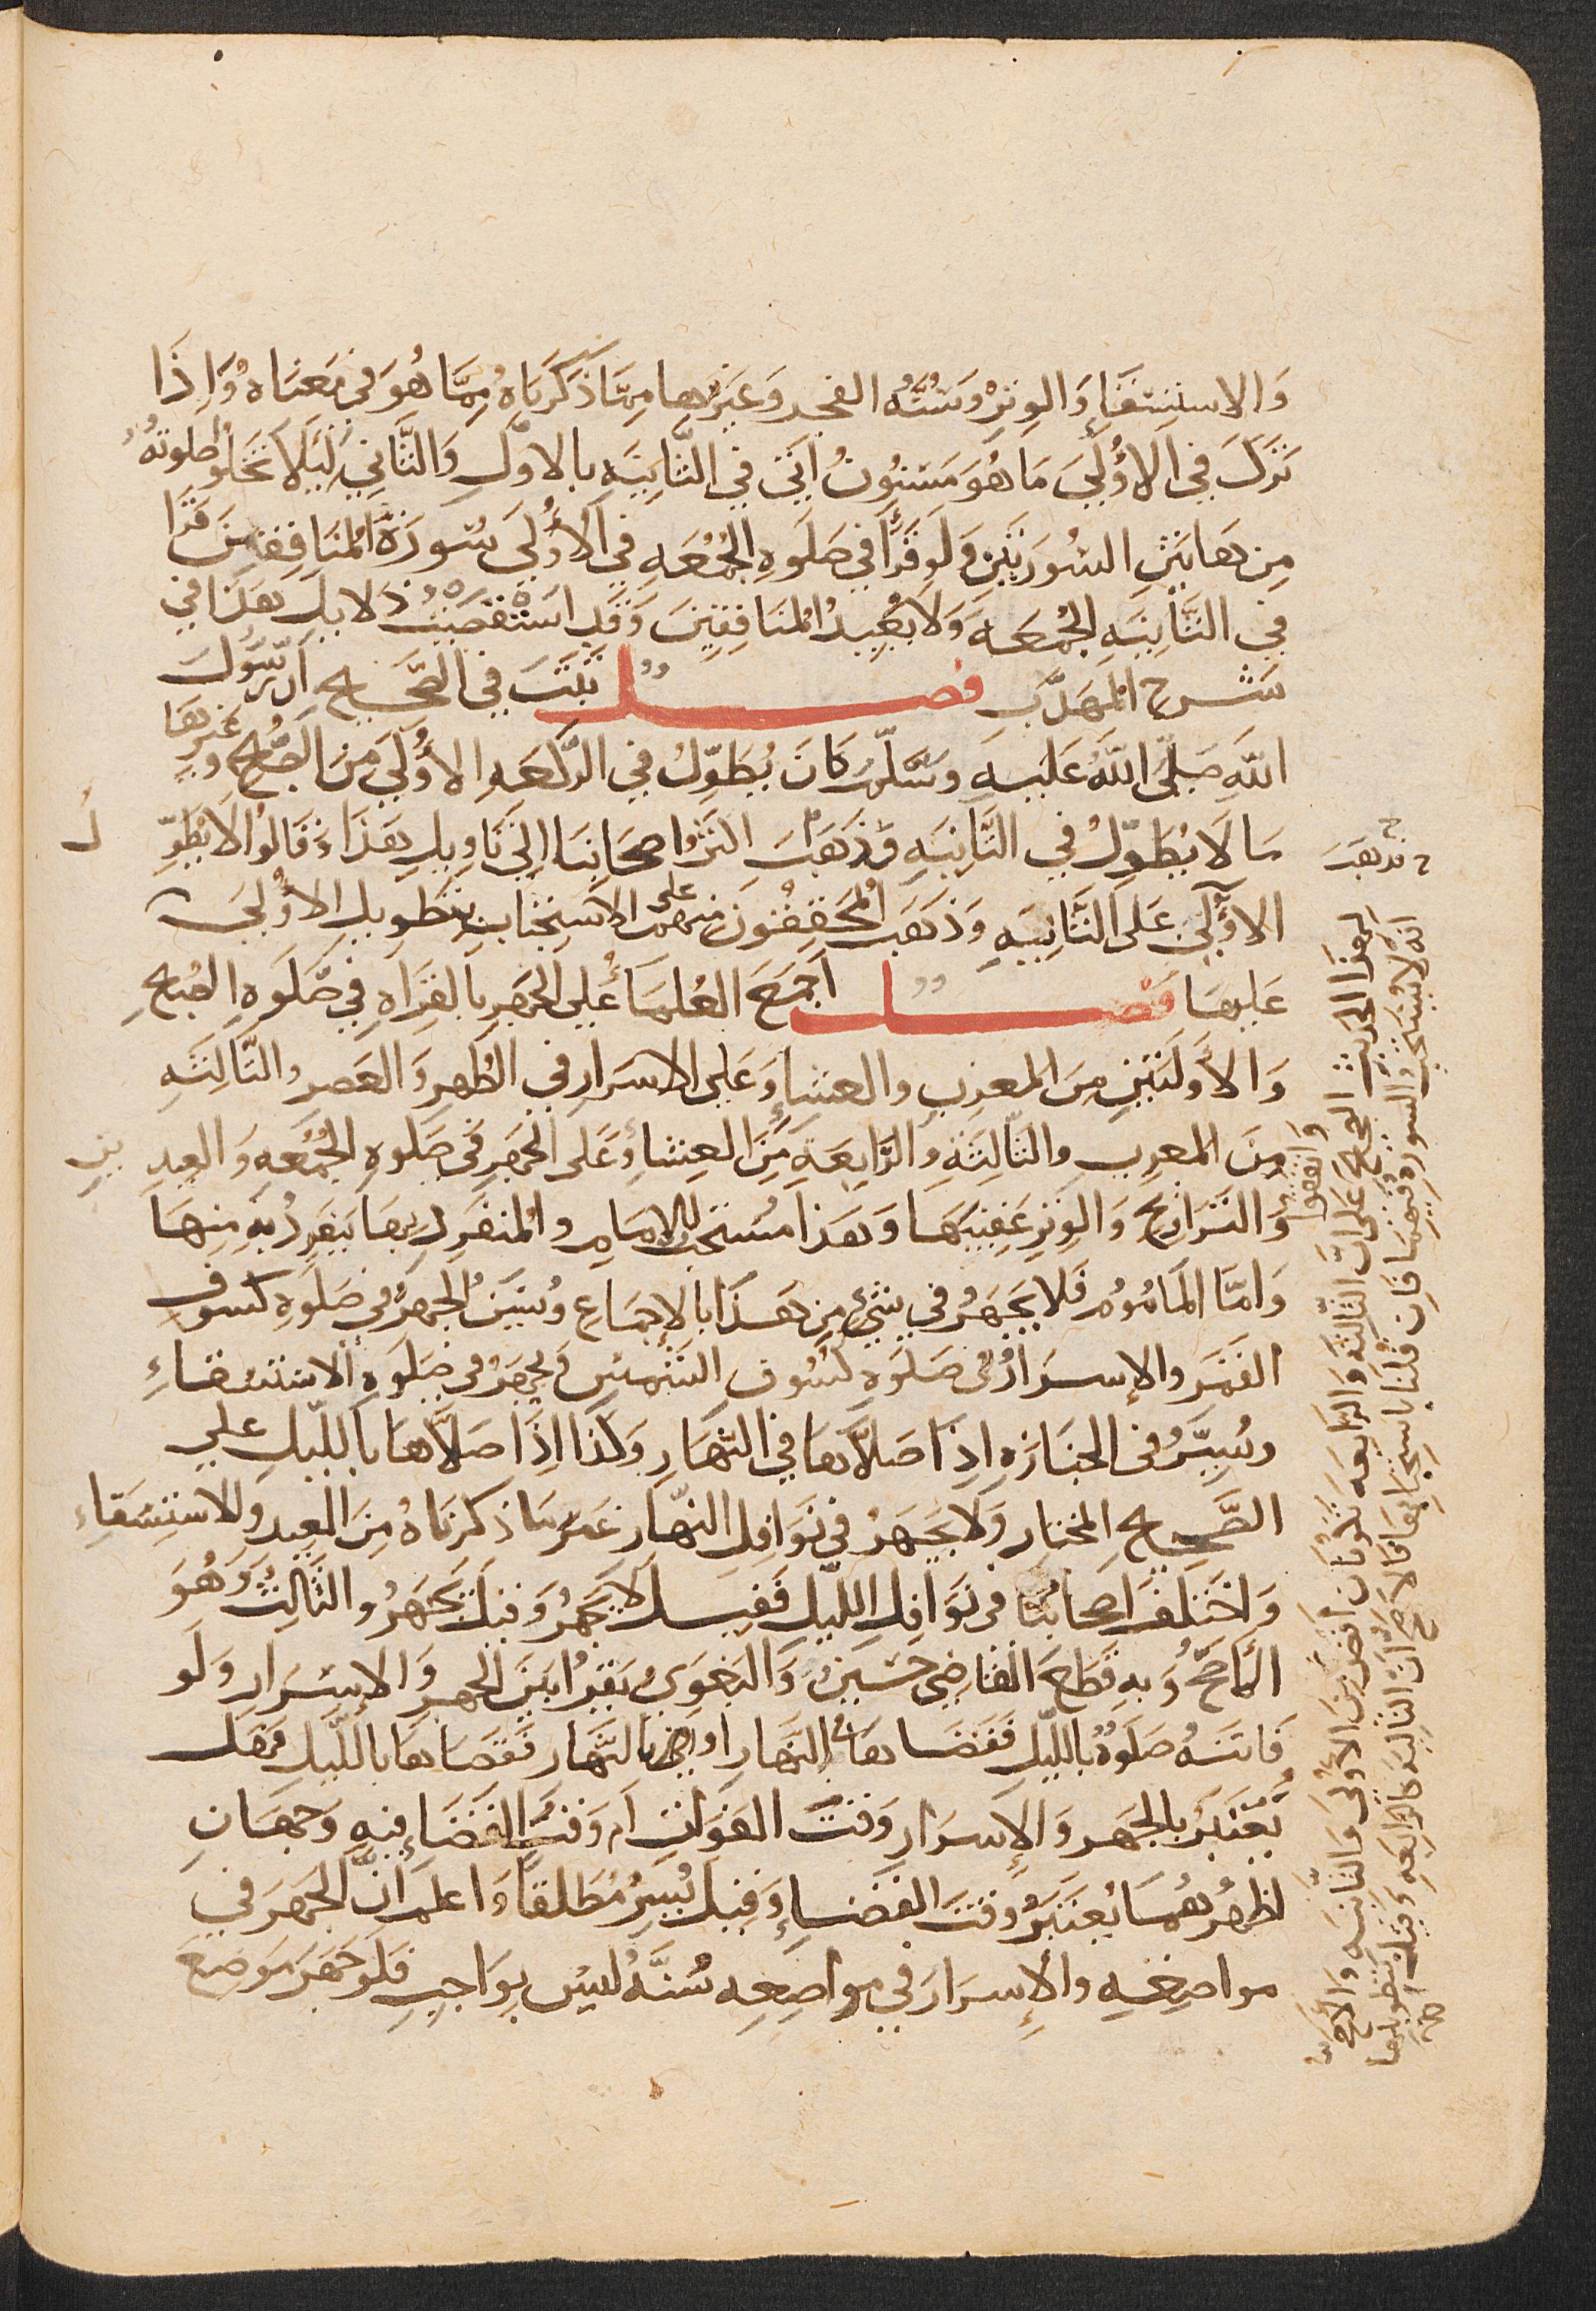 وَالاِستِسْقَاءِ وَالوِترْ وَسُنَّه الفجر وَغَيرهَا مِمَّا ذَكَرنَاهُ مِمَّا هُوَ فِي مَعنَاهُ وَإِذَا
تَرَكَ فِي الأُولَى مَا هُوَ مَسْنُونٌ أَتَى فِي الثَّانِيَهِ بِالأوّلِ وَالثَّانِي لِيَلا تَخلو صلوته
مِن هَاتَيْنِ السُورَتَيْنِ وَلَو قَرَأَ فِي صَلَوهِ الجُمُعَهِ فِي الأُولَى سُورَةَ المُنَافِقِينَ قَرَا
فِي الثَّانِيَهِ الجُمُعَه وَلَا يُعِيدُ المُنَافِقِينَ وَقَدِ اسْتَقصَيْتُ دَلايلَ هَذَا فِي
شَرح المهَذَّبِ فصل ثَبَتَ فِي الصَّحِيحِ أَن رَّسُولَ
اللَّهِ صَلَّى اللَّهُ عَلَيهِ وَسَلَّمَ كَانَ يُطَوِّلُ فِي الرَّكعَهِ الأُولَى مِنَ الصُّبحِ وغيرهَا
مَا لَا يُطَوِّلُ فِي الثَّانِيَهِ فَذَهَبَ اكثَرُ اصحَابِنَا إِلَى تَاوِيلِ هَذَا وَقَالُوا لَا يُطَوِّلُ
الأُولَى عَلَى الثَّانِيَهِ وَذَهَبَ المُحَقِّقُونَ مِنهُم على الاستِحْبَابِ بِتَطوِيلِ الأُولَى
عَلَيهَا فَصل أَجمَعَ العُلمَاءُ عَلى الجَهرِ بِالقِرَاهِ فِي صَّلَوهِ الصُّبحِ
وَالأُولَتَيْنِ مِنَ المَغرِبِ وَالعِشَاءِ وَعَلى الاسرَارِ فِي الظُهرِ وَالعَصرِ وَالثَّالِثَهِ
مِنَ المَغرِبِ وَالثَّالِثَهِ وَالرَّابِعَةِ مِنَ العِشاءِ وَعَلى الجَهرِ فِي صَلَوهِ الجُمُعَهِ وَالعِيدِين
وَالتَرَاوِيحِ وَالوِترِ عَقِيبَهَا وَهَذا مُستَحَبٌ لِلإمَامِ وَالمُنفَرِدِ بِهَا يَنفَرِدُ بِهِ مِنهَا
وَأَمَّا المَأمُومُ فَلا يَجهَرُ فِي شَيءٍ مِن هَذَا بِالإِجمَاعِ وَيُسَنُ الجَهرُ فِي صَلَوهِ كسُوفِ
القَمَرِ وَالإِسرَارُ فِي صَلَوهِ كُسُوفِ الشَّمسِ وَيجهَرُ فِي صَلَوهِ الاستسقَاءِ
وَيُسِرُّ فِي الجَنَازَهِ إِذَا صَلَّاهَا فِي النَّهَارِ وَكَذَا إِذَا صَلَّاهَا بِاللَّيلِ عَلى
الصَّحِيحِ المُختارِ وَلَا يَجهَرُ فِي نَوَافِلِ النَّهَارِ غَيرَ مَا ذَكَرنَاهُ مِنَ العِيدِ وَالاستِسقَاءِ
وَاختَلَفَ اصحَابُنَا فِي نَوَافِلِ اللَّيلِ فَقِيلَ لَا يَجهَرُ وَقِيلَ يَجهَرُ وَالثَّالِثُ وَهُوَ
الأَصَحُّ وَبِهِ قَطَعَ القَاضِي حُسَينٌ وَالبَغَوِيُّ يَقرَأُ بَينَ الجَهرِ وَالإِسرَارِ وَلَو
فَاتَتهُ صَلَوةٌ بِاللَّيلِ فَقَضَاهَا فِي النَّهَارِ او بِالنَّهَارِ فَقَضَاهَا بِاللَّيلِ فَهَل
يُعْتَبَرُ بِالجَهرِ وَالإِسرَارِ وَقتَ الفَوَاتِ أَم وَقتَ القَضَاءِ فِيهِ وَجهَانِ
اظهرُهُمَا يُعتَبَرُ وَقتَ القَضَاءِ وَقِيلَ يُسِرُّ مُطلَقًا وَاعلَم أَنَّ الجَهرَ فِي
مَوَاضِعِهِ وَالإِسرَارَ فِي مَواضِعِهِ سُنَّةٌ لَيسَ بِوَاجِبٍ فَلَو جَهَرَ مَوضِعَ
لهَذَا الحديث الصحيح وَاتفقوا عَلى أَنَّ الثَّالِثَةَ وَالرَّابِعَه تكُونَان أَقصَرَ مِنَ الأُولى وَالثَّانِيَهِ وَالأَصَحُّ
انّه لا يُستَحَبُّ السُّورَهُ فِيهِمَا فَإن قُلنَا باستِحبَابِهَا فَالأَصَحُّ أَنَّ الثالِثه كَالرابعهِ وَقيل بتطويلها